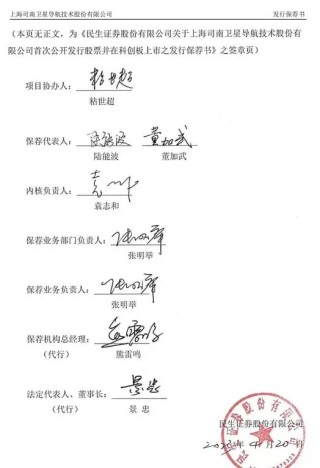 上海司南卫星导航技术股份有限公司 发行保荐书
(本页无正文，为《民生证券股份有限公司关于上海司南卫星导航技术股份有
限公司首次公开发行股票并在科创板上市之发行保荐书》之签章页)
项目协办人：粘世超
粘世超
保荐代表人：陆能波 董加武
陆能波 董加武
内核负责人：
袁志和
保荐业务部门负责人：张明举
张明举
保荐业务负责人：张明举
张明举
保荐机构总经理：熊雷鸣
（代行） 熊雷鸣
法定代表人、董事长：景忠
（代行） 景 忠
民生证券股份有限公司
民生证券股份有限公司
年4月20日